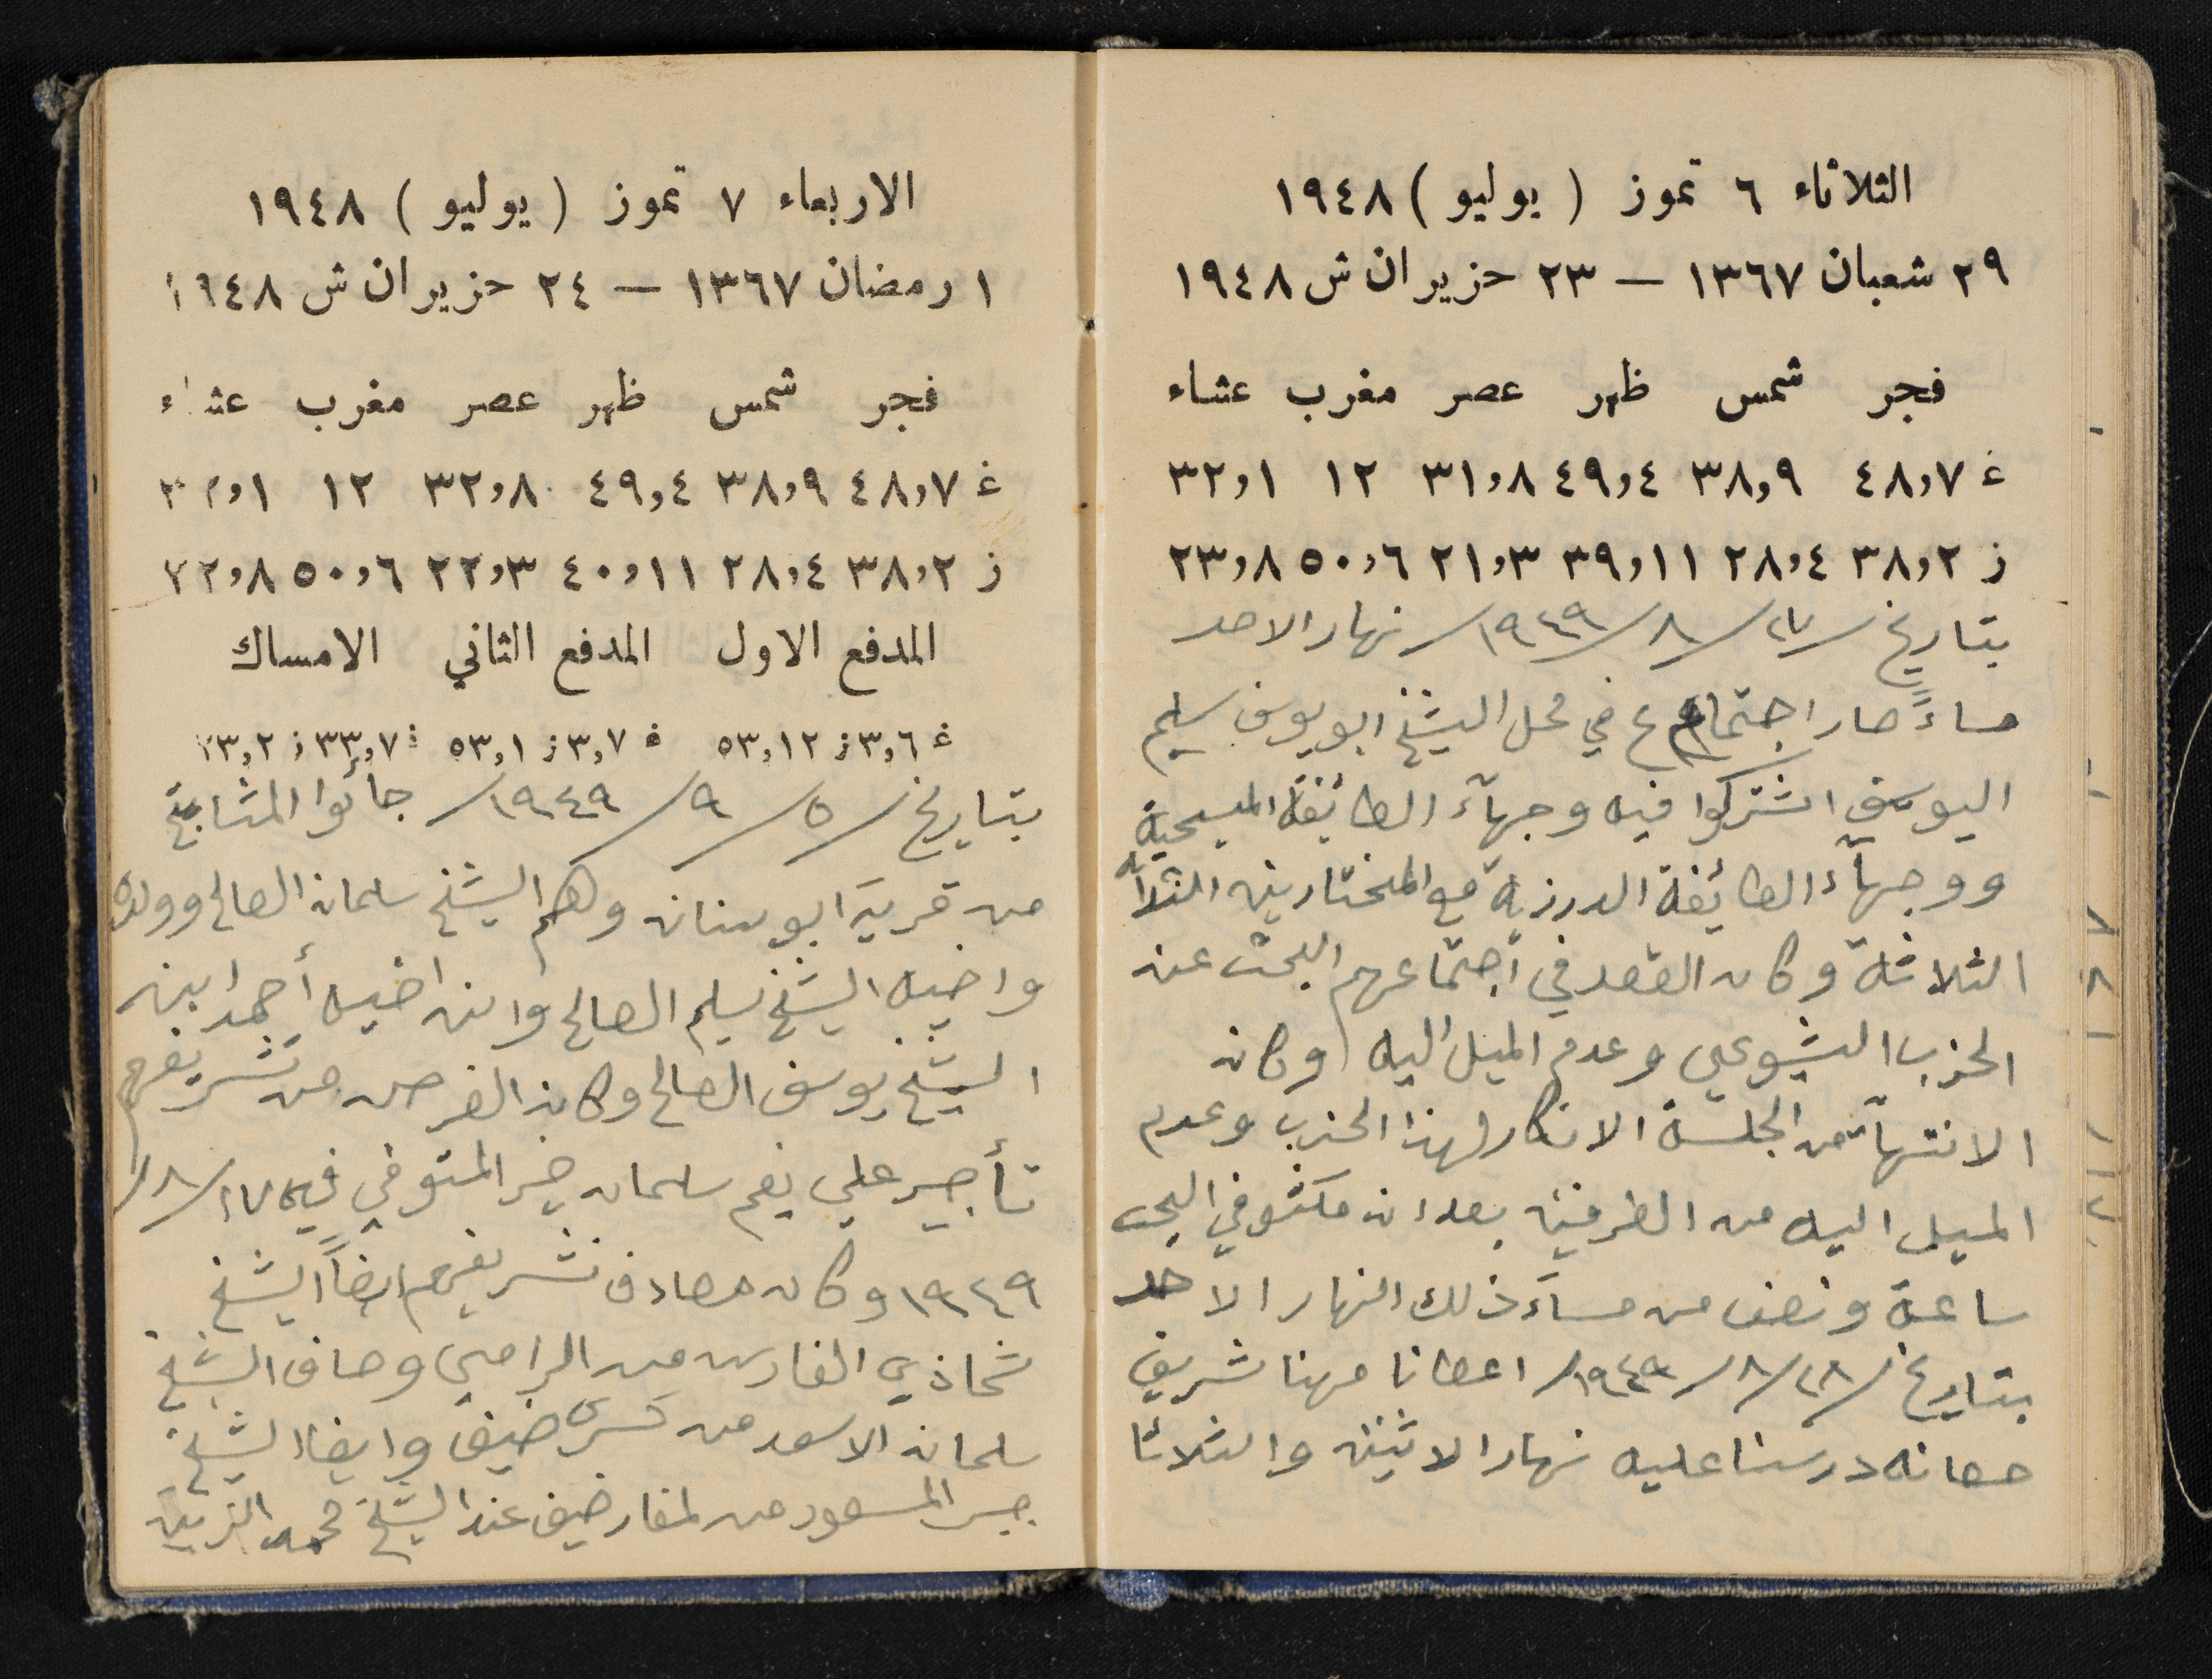 الثلاثاء ٦ تموز ( يوليو ) ١٩٤٨
٢٩ شعبان ١٣٦٧ — ٢٣ حزيران ش ١٩٤٨
فجر شمس ظهر عصر مغرب عشاء
غ ٤٨,٧ ٣٨,٩ ٤٩,٤ ٣١,٨ ١٢ ٣٢,١
ز ٣٨,٢ ٢٨,٤ ٣٩,١١ ٢١,٣ ٥٠,٦ ٢٣,٨
بتاريخ /٢٧/٨/١٩٤٩/ نهار الاحد
مساءً صار اجتماع في محل الشيخ ابو يوسف سليم
اليوسف اشتركوا فيه وجهآء الطائيفة المسيحية
ووجهآء الطائيفة الدرزية مع المختارين الثلاثه
الثلاثة وكان القصد في اجتماعهم البحث عن
الحزب الشيوعي وعدم الميل اليه وكان
الانتهآء من الجلسة الانكار لهذا الحزب وعدم
الميل اليه من الطرفين بعد ان مكثو في البحث
ساعة ونصف من مسآء ذلك النهار الاحد
بتاريخ /٢٨/٨/١٩٤٩/ اعطانا مهنا شريف
حصانه درسنا عليه نهار الاثنين والثلاثا
الاربعاء ٧ تموز ( يوليو ) ١٩٤٨
١ رمضان ١٣٦٧ — ٢٤ حزيران ش ١٩٤٨
فجر شمس ظهر عصر مغرب عشاء
غ ٤٨,٧ ٣٨,٩ ٤٩,٤ ٣٢,٨ ١٢ ٣٢,١
ز ٣٨,٢ ٢٨,٤ ٤٠,١١ ٢٢,٣ ٥٠,٦ ٢٢,٨
المدفع الاول المدفع الثاني الامساك
غ ٣,٦ ز ٥٣,١٢ غ ٣,٧ ز ٥٣,١ غ ٣٣,٧ ز ٢٣,٢
بتاريخ /٥/٩/١٩٤٩/ جائوا المشايخ
من قرية ابو سنان وهم الشيخ سلمان الصالح وولده
واخيه الشيخ سليم الصالح وابن اخيه أحمد ابن
الشيخ يوسف الصالح وكان الغرض من تشريفهم
تأجير علي نعيم سلمان خير المتوفي فيه ١٧/٨/
١٩٤٩ وكان مصادف تشريفهم ايضاً الشيخ
شحاذي الفارس من الرامي وصاف الشيخ
سلمان الاسعد من كسرى ضيف وايضا الشيخ
جبر المسعود من لمغار ضيف عند الشيخ محمد